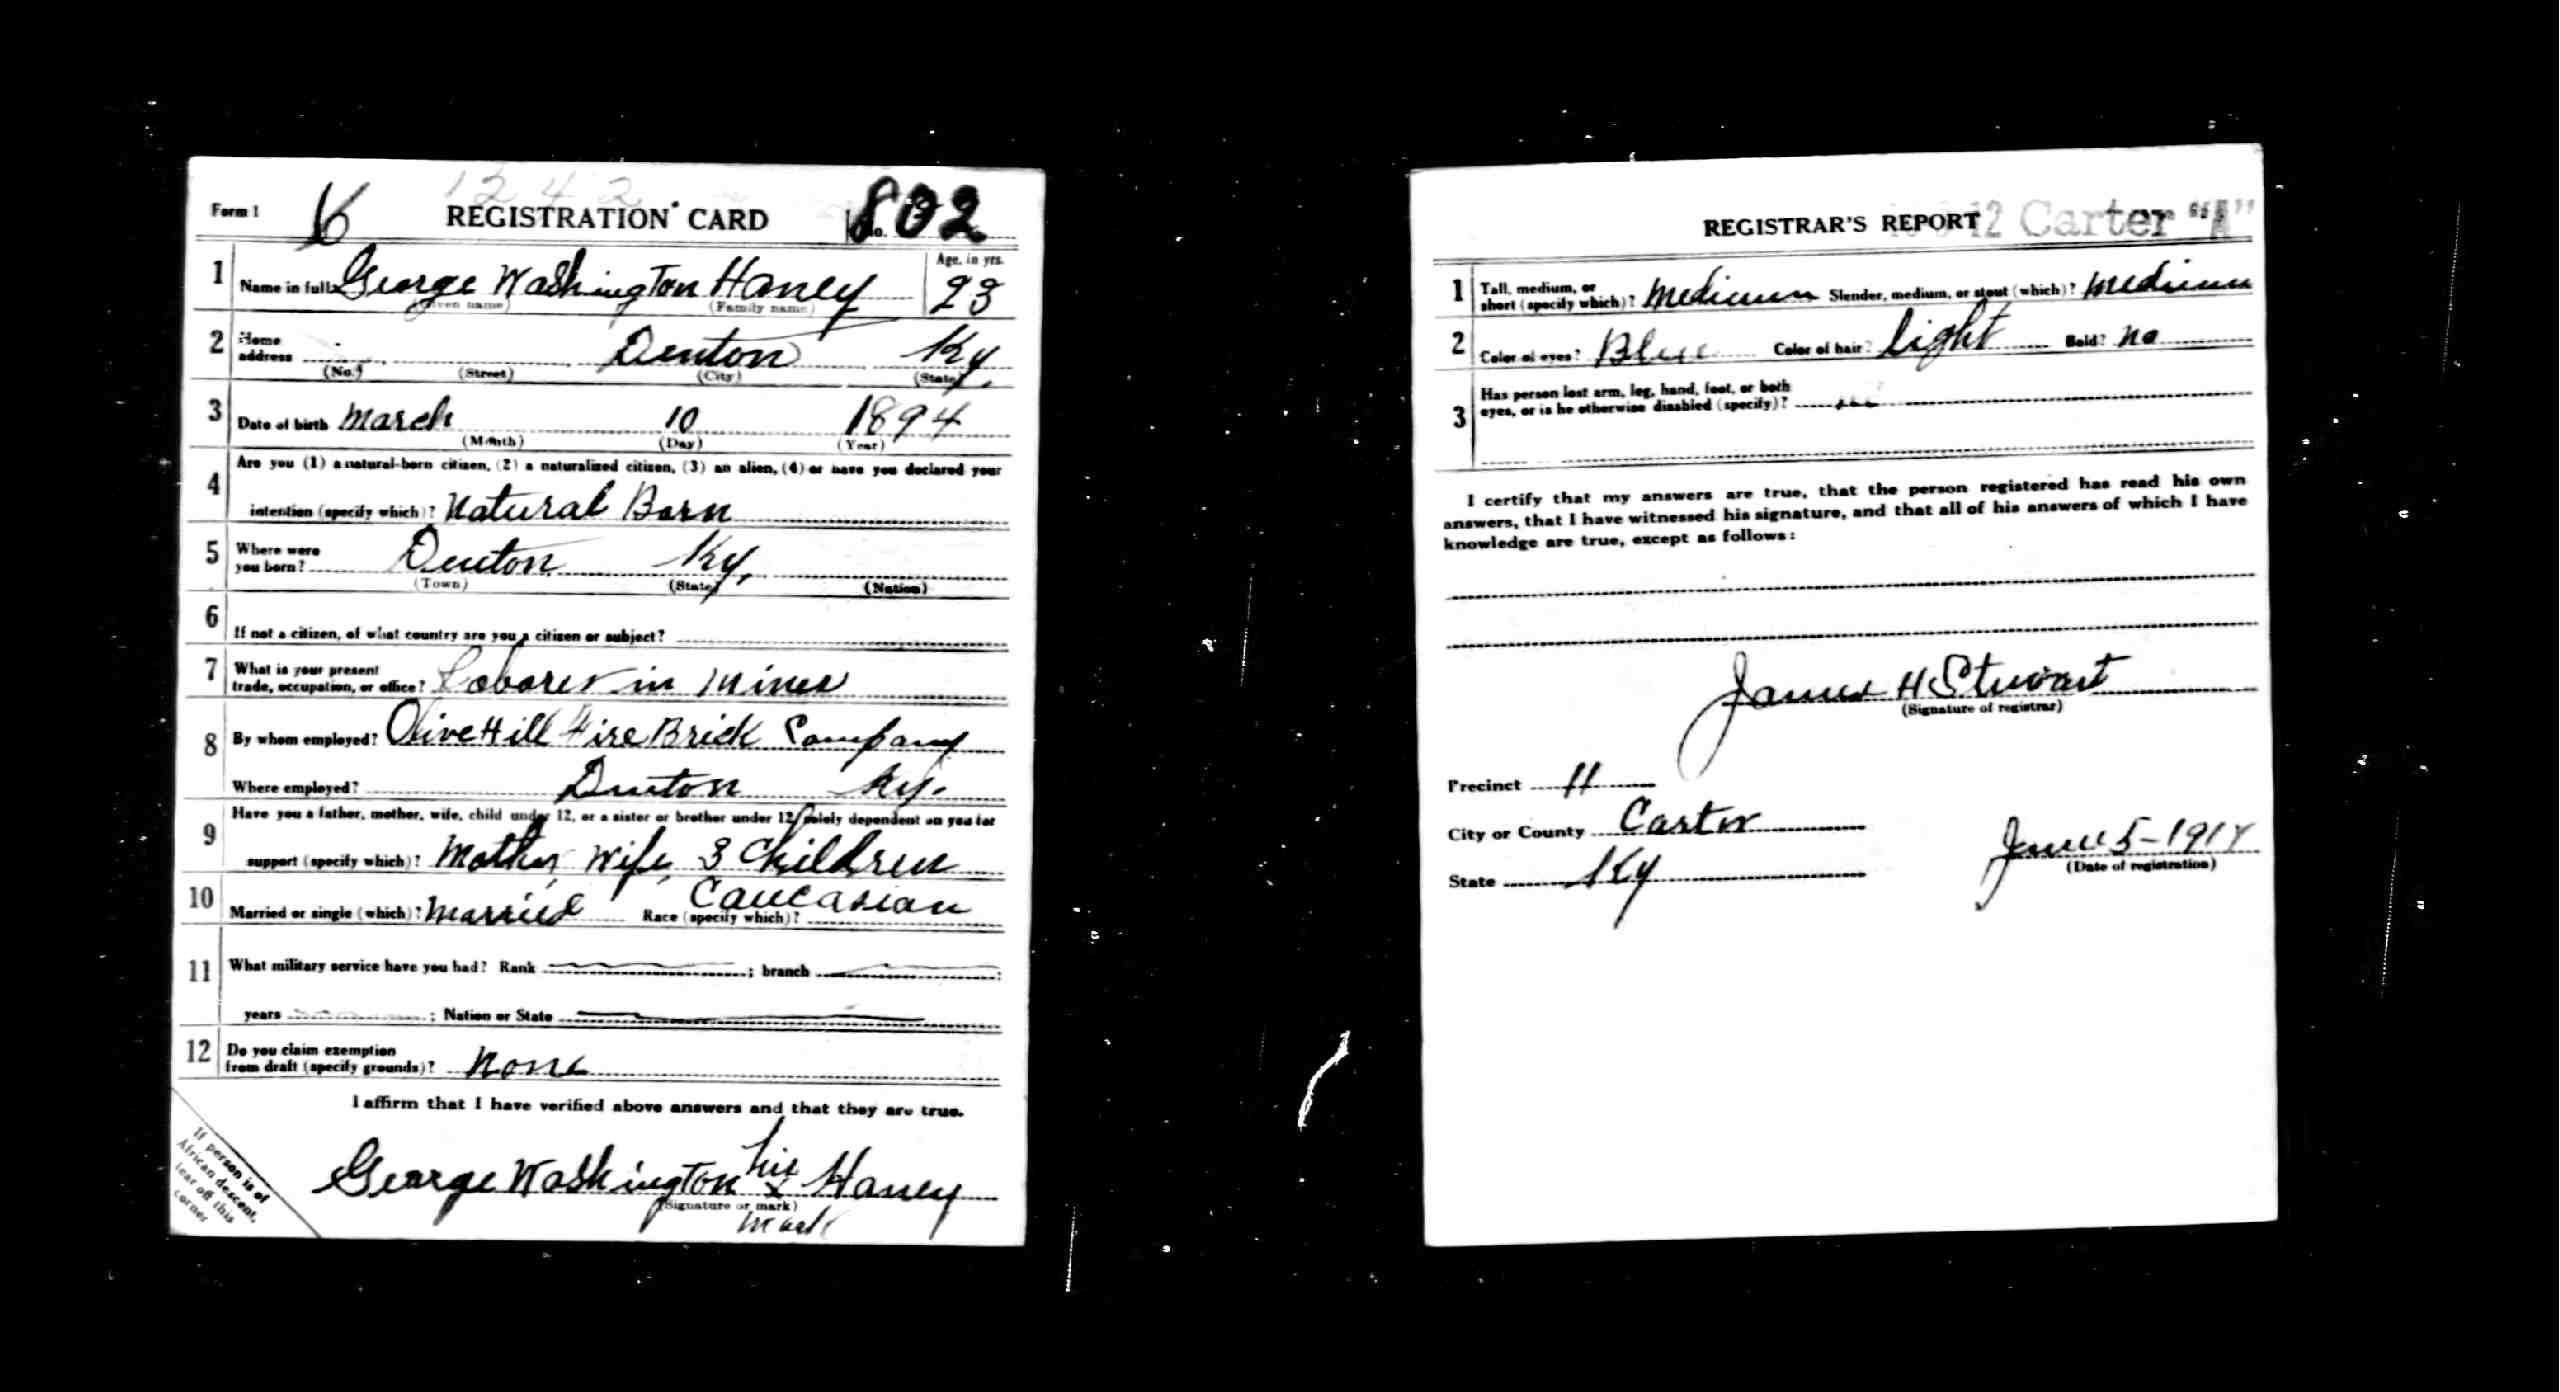 1242
Form 1 REGISTRATION CARD No. 802
1 Name in full George Washington Haney Age, in yrs. 23
(Given name) (Family name)
2 Home address Denton Ky.
(No.) (Street) (City) (State)
3 Date of birth March 10 1894
(Month) (Day) (Year)
4 Are you (1) a natural-born citizen, (2) a naturalized citizen, (3) an alien, (4) or have you declared your
intention (specify which)? Natural Born
5 Where were you born? Denton Ky.
(Town) (State) (Nation)
6 If not a citizen, of what country are you a citizen or subject?
7 What is your present
trade, occupation, or office? Laborer in mines
8 By whom employed? Olive Hill Fire Brick Company
Where employed? Denton Ky.
9 Have you a father, mother, wife, child under 12, or a sister or brother under 12, solely dependent on you for
support (specify which)? Mother, wife, 3 Children
10 Married or single (which)? Married Race (specify which)? Caucasian
11 What military service have you had? Rank ; branch ;
years ; Nation or State
12 Do you claim exemption
from draft (specify grounds)? None
I affirm that I have verified above answers and that they are true.
George Washington his x Haney
(Signature or mark)
mark
If person is of
African descent,
tear off this
corner
REGISTRAR'S REPORT 12 Carter "A"
1 Tall, medium, or
short (specify which)? Medium Slender, medium, or stout (which)? Medium
2 Color of eyes? Blue Color of hair? Light Bald? No
3 Has person lost arm, leg, hand, foot, or both
eyes, or is he otherwise disabled (specify)? no
I certify that my answers are true, that the person registered has read his own
answers, that I have witnessed his signature, and that all of his answers of which I have
knowledge are true, except as follows:
James H Stewart
(Signature of registrar)
Precinct
City or County Carter
State Ky
June 5-1917
(Date of registration)